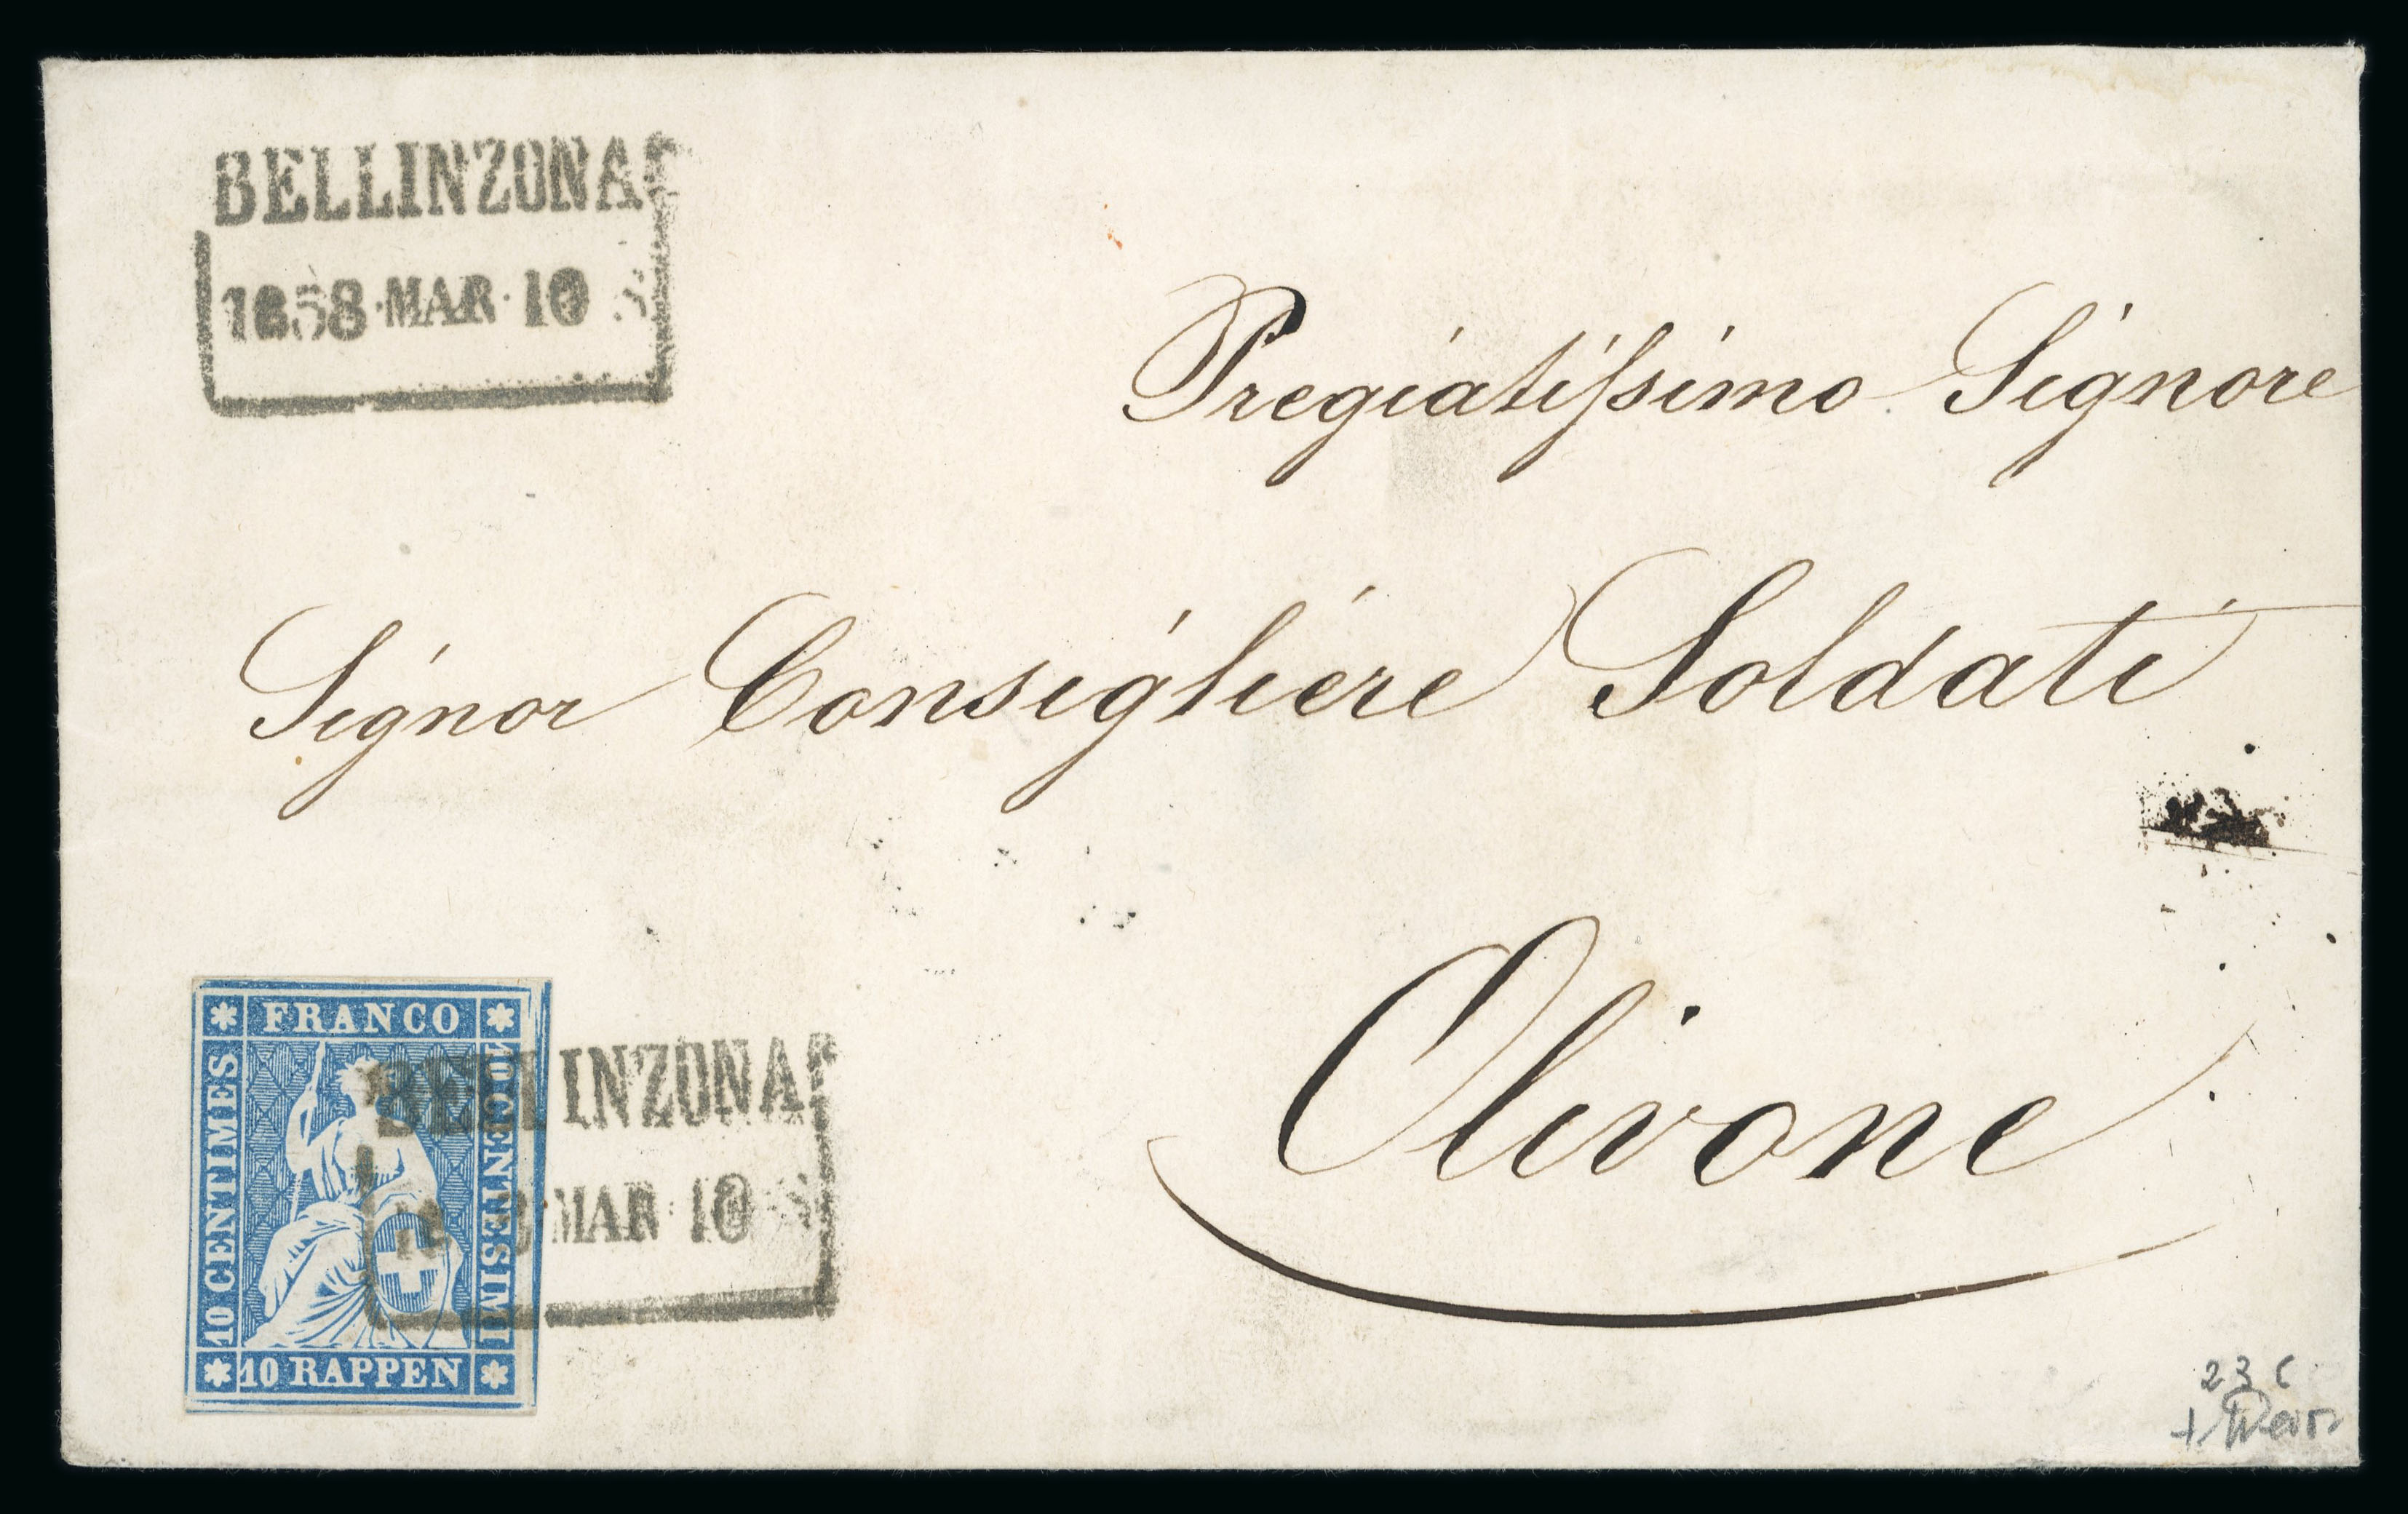 BELLINZONA
1858·MAR·10 S
Pregiatiſsimo Signore
Signor Consigliere Soldati
Olivone
FRANCO
10 CENTIMES
10 CENTESIMI
10 RAPPEN
BELLINZONA
MAR·10 S
23 C